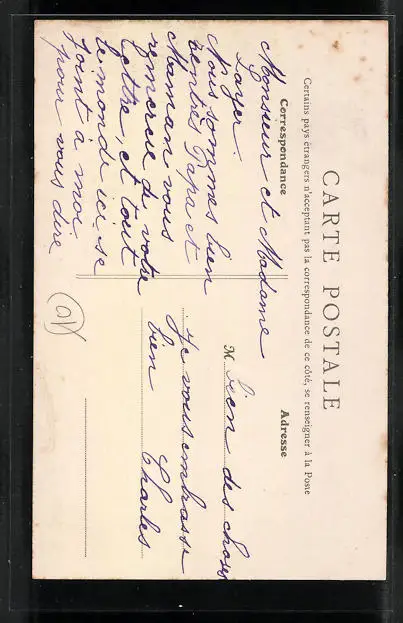 CARTE POSTALE
Certains pays étrangers n'acceptant pas la correspondance de ce côté, se renseigner à la Poste
Correspondance
Adresse
Monsieur et Madame
Layer.
Nous sommes bien
rentrés Papa et
Maman vous
remercie de votre
lettre, et tout
le monde ici se
joint à moi
pour vous dire
M bien des choses
Je vous embrasse
bien
Charles